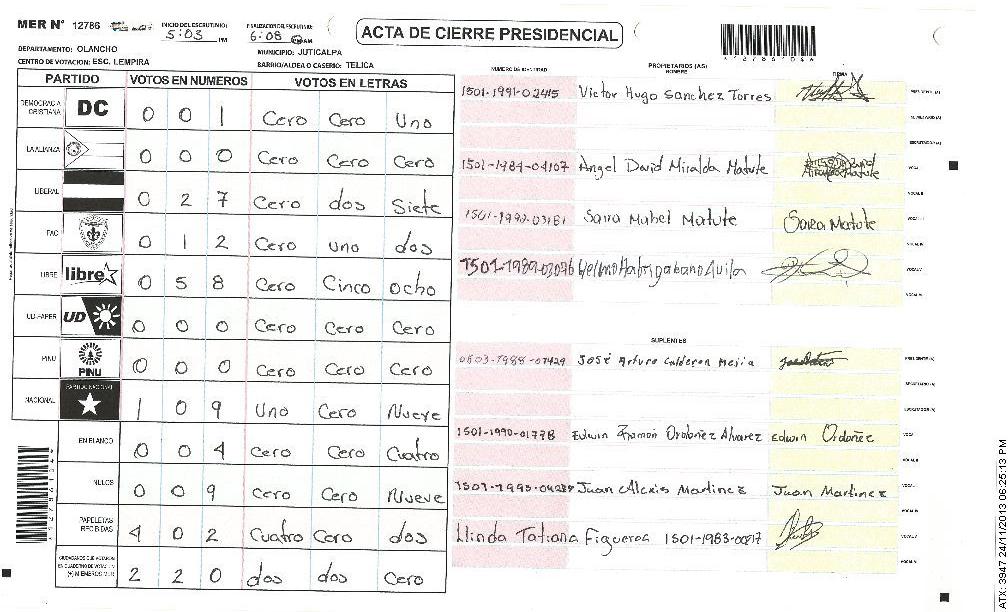 MER Nº 12786
INICIO DEL ESCRUTINIO: 5:03 PM
FINALIZACION DEL ESCRUTINIO: 6:08 AM
ACTA DE CIERRE PRESIDENCIAL
DEPARTAMENTO: OLANCHO
MUNICIPIO: JUTICALPA
CENTRO DE VOTACION: ESC. LEMPIRA
BARRIO/ALDEA O CASERIO: TELICA
PARTIDO VOTOS EN NUMEROS VOTOS EN LETRAS
DEMOCRACIA CRISTIANA DC 0 0 1 Cero Cero Uno
LA ALIANZA 0 0 0 Cero Cero Cero
LIBERAL 0 2 7 Cero dos Siete
FAC 0 1 2 Cero uno dos
LIBRE libre 0 5 8 Cero Cinco ocho
UD-FAPER UD 0 0 0 Cero Cero Cero
PINU PINU 0 0 0 Cero Cero Cero
NACIONAL PARTIDO NACIONAL 1 0 9 Uno Cero Nueve
EN BLANCO 0 0 4 Cero Cero Cuatro
NULOS 0 0 9 Cero Cero Nueve
PAPELETAS RECIBIDAS 4 0 2 Cuatro Cero dos
CIUDADANOS QUE VOTARON EN CUADERNO DE VOTACION (+) MIEMBROS MER 2 2 0 dos dos Cero
NUMERO DE IDENTIDAD PROPIETARIOS (AS) NOMBRE FIRMA
1501-1991-02415 Victor Hugo Sanchez Torres
1501-1984-04107 Angel David Miralda Matute
1501-1990-03181 Sara Mabel Matute Sara Matute
SUPLENTES
0803-1988-07429 José Arturo Calderon Mejia
1501-1990-01778 Edwin Ramon Ordoñez Alvarez Edwin Ordoñez
Juan Alexis Martinez Juan Martinez
Llinda Tatiana Figueroa 1501-1983-0017
ATX: 3947 24/11/2013 06:25:13 PM